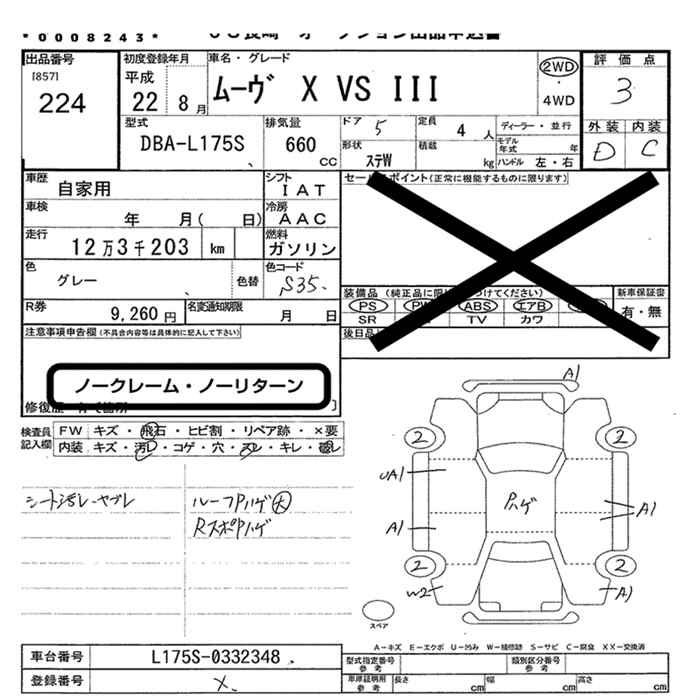 *0008243*
出品番号 初度登録年月 車名・グレード 2WD ・ 4WD 評価点
[857] 224 平成 22 8月 ムーヴ X VS III 3
型式 排気量 ドア 5 定員 4人 ディーラー・並行 外装 内装
DBA-L175S 660cc 形状 ステW 積載 kg モデル年式 年 ハンドル 左・右 D C
車歴 自家用 シフト IAT セールスポイント(正常に機能するものに限ります)
車検 年 月( 日) 冷房 AAC
走行 12万3千203 km 燃料 ガソリン
色 グレー 色替 色コード S35
装備品(純正品に限 つけてください) 新車保証書
PS PW ABS エアB 有・無
SR TV カワ
R券 9,260円 名変通知期限 月 日
後日品
注意事項申告欄(不具合内容等は具体的に記入して下さい)
ノークレーム・ノーリターン
修復歴
検査員記入欄 FW キズ・飛石・ヒビ割・リペア跡・×要
内装 キズ・汚レ・コゲ・穴・スレ・キレ・破レ
シート汚レヤブレ
ルーフPハゲ大
RスポPハゲ
A1
2 2
UA1
Pハゲ
A1 A1
2 2
W2 A1
スペア
A-キズ E-エクボ U-凹み W-補修跡 S-サビ C-腐食 XX-交換済
車台番号 L175S-0332348
型式指定番号 参考 類別区分番号 参考
登録番号 X
車庫証明用 参考 長さ cm 幅 cm 高さ cm